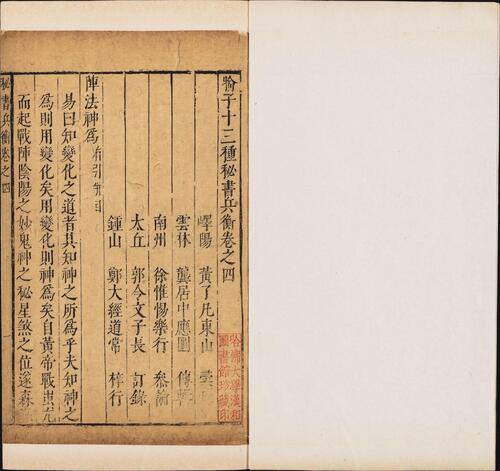 喻子十三種秘書兵衡卷之四
嶧陽 黃了凡東山
雲林 龔居中應圓
南州 徐惟惕樂行 叅
太丘 郭令文子長 訂錄
鍾山 鄭大經道常 梓行
陣法神爲
易曰知變化之道者其知神之所爲乎夫知神之
爲則用變化矣用變化則神爲矣自黃帝戰蚩尤
而起戰陣陰陽之妙鬼神之秘星煞之位遂森
秘書兵衡卷之四
哈佛大學漢和
圖書館珍藏印